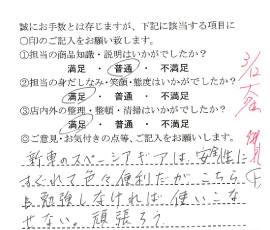 誠にお手数とは存じますが、下記に該当する項目に
〇印のご記入をお願い致します。
①担当の商品知識・説明はいかがでしたか?
満足 ・ 普通 ・ 不満足
②担当の身だしなみ・笑顔・態度はいかがでしたか?
満足 ・ 普通 ・ 不満足
③店内外の整理・整頓・清掃はいかがでしたか?
満足 ・ 普通 ・ 不満足
◎ご意見・お気付きの点等、ご記入をお願いします。
新車のスペーシアギアは、安全性に
すぐれて色々便利だが こちら
も勉強しなければ 使いこな
せない。頑張ろう